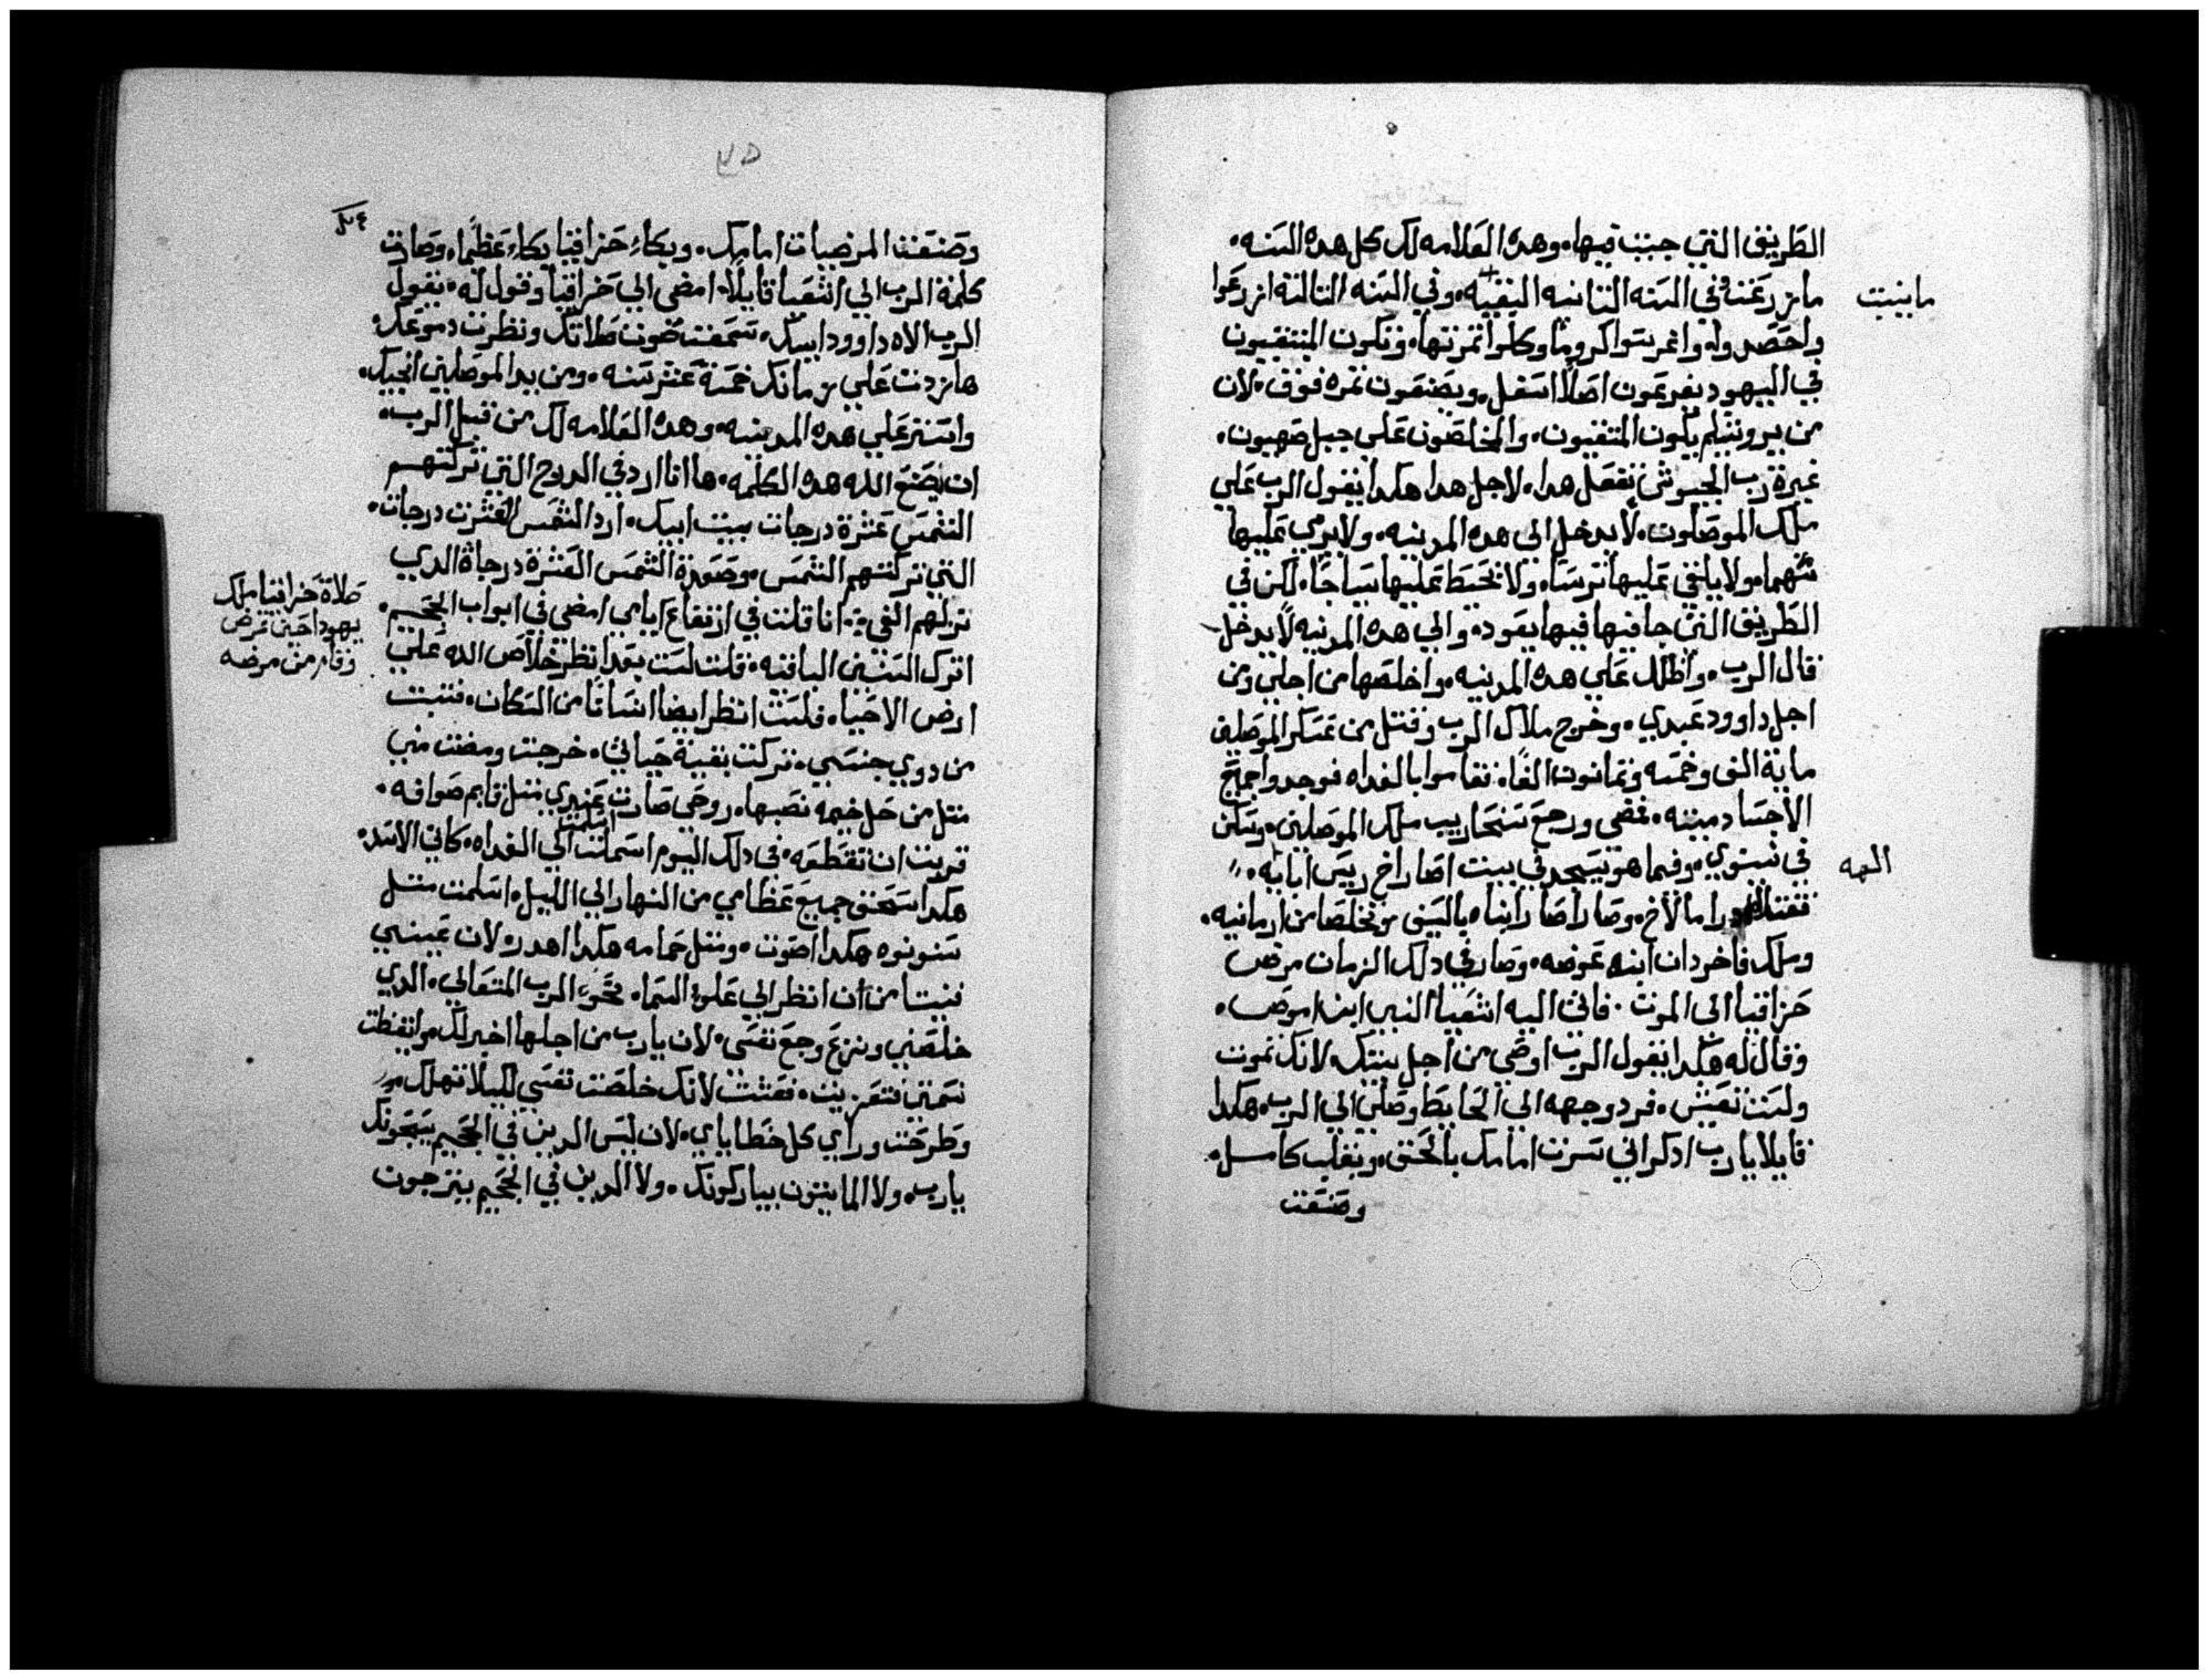 الطريق التي جيت فيها. وهده العلامه لك كل هده السنه.
ما زرعت في السنه التانيه البقيه. وفي السنه التالته ازرعوا
ما ينبت
واحصدوا واغرسوا كروما وكلوا تمرتها. وتكون المتبقيون
في اليهود يفرعون اصلا اسفل. ويصنعون تمره فوق. لان
من يروشليم يكون المتبقيون. والمخلصون علي جبل صهيون.
غيرة رب الجيوش تفعل هدا. لاجل هدا هكدا يقول الرب علي
ملك الموصلون. لا يدخل الي هده المدينه. ولا يرمي عليها
سهما. ولا يلقي عليها ترسا. ولا يحيط عليها سياجا. لكن في
الطريق التي جا فيها فيها يعود. والي هده المدينه لا يدخل
قال الرب. واظلل علي هده المدينه. واخلصها من اجلي ومن
اجل داوود عبدي. وخرج ملاك الرب وقتل من عسكر الموصلين
ماية الف وخمسه وتمانون الفا. فقاموا بالغداه فوجدوا جميع
الاجساد ميته. فمضي ورجع سنحاريب ملك الموصلين. وسكن
في نينوي. وفيما هو يسجد في بيت اصاراخ رييس ابايه.
الهه
فقتله ادرامالاخ. وصاراصار ابناه بالسيف وتخلصا من ارمانيه.
وملك فاخردان ابنه عوضه. وصار في دلك الزمان مرض
حزاقيا الي الموت. فاتي اليه اشعيا النبي ابن اموص.
وقال له هكدا يقول الرب اوصي من اجل بيتك. لانك تموت
ولست تعيش. فرد وجهه الي الحايط وصلي الي الرب. هكدا
قايلا يا رب ادكر اني سرت امامك بالحق. وبقلب كامل.
وصنعت
وصنعت المرضيات امامك. وبكاء حزاقيا بكاء عظيما. وصارت
كلمة الرب الي اشعيا قايلا. امضي الي حزاقيا وقول له. يقول
الرب الاه داوود ابيك. سمعت صوت صلاتك ونظرت دموعك.
ها زدت علي زمانك خمسة عشر سنه. ومن يد الموصلين انجيك.
واستر علي هده المدينه. وهده العلامه لك من قبل الرب.
ان يصنع الله هده الكلمه. ها انا ارد في الدرج التي تركتهم
الشمس عشرة درجات بيت ابيك. ارد الشمس العشرت درجات.
التي تركتهم الشمس. وصعدة الشمس العشرة درجاة الدي
نزلهم الفي. انا قلت في ارتفاع ايامي امضي في ابواب الجحيم.
صلاة حزاقيا ملك
يهودا حين مرض
وقام من مرضه
اترك السنين الباقيه. قلت لست بعد انظر خلاص الله علي
ارض الاحيا. فلست انظر ايضا انسانا من السكان. فنيت
من دوي جنسي. تركت بقية حياتي. خرجت ومضت مني
متل من حل خيمه نصبها. روحي صارت عندي متل قايم صوافه.
قربت ان تقطعه. في دلك اليوم اسلمت الي الغداه. كاني الاسد.
هكدا سحق جميع عظامي من النهار الي الليل. اسلمت متل
سنونوه هكدا اصوت. ومتل حمامه هكدا اهدر. لان عيني
فنيتا من ان انظر الي علو السما. نحو الرب المتعالي. الدي
خلصني ونزع وجع نفسي. لان يا رب من اجلها اخبر لك. وايقظت
نسمتي فتعزيت. فعشت لانك خلصت نفسي لكيلا تهلك.
وطرحت وراي كل خطاياي. لان ليس الدين في الجحيم يسبحونك
يا رب. ولا المايتون يباركونك. ولا الدين في الجحيم يترجون